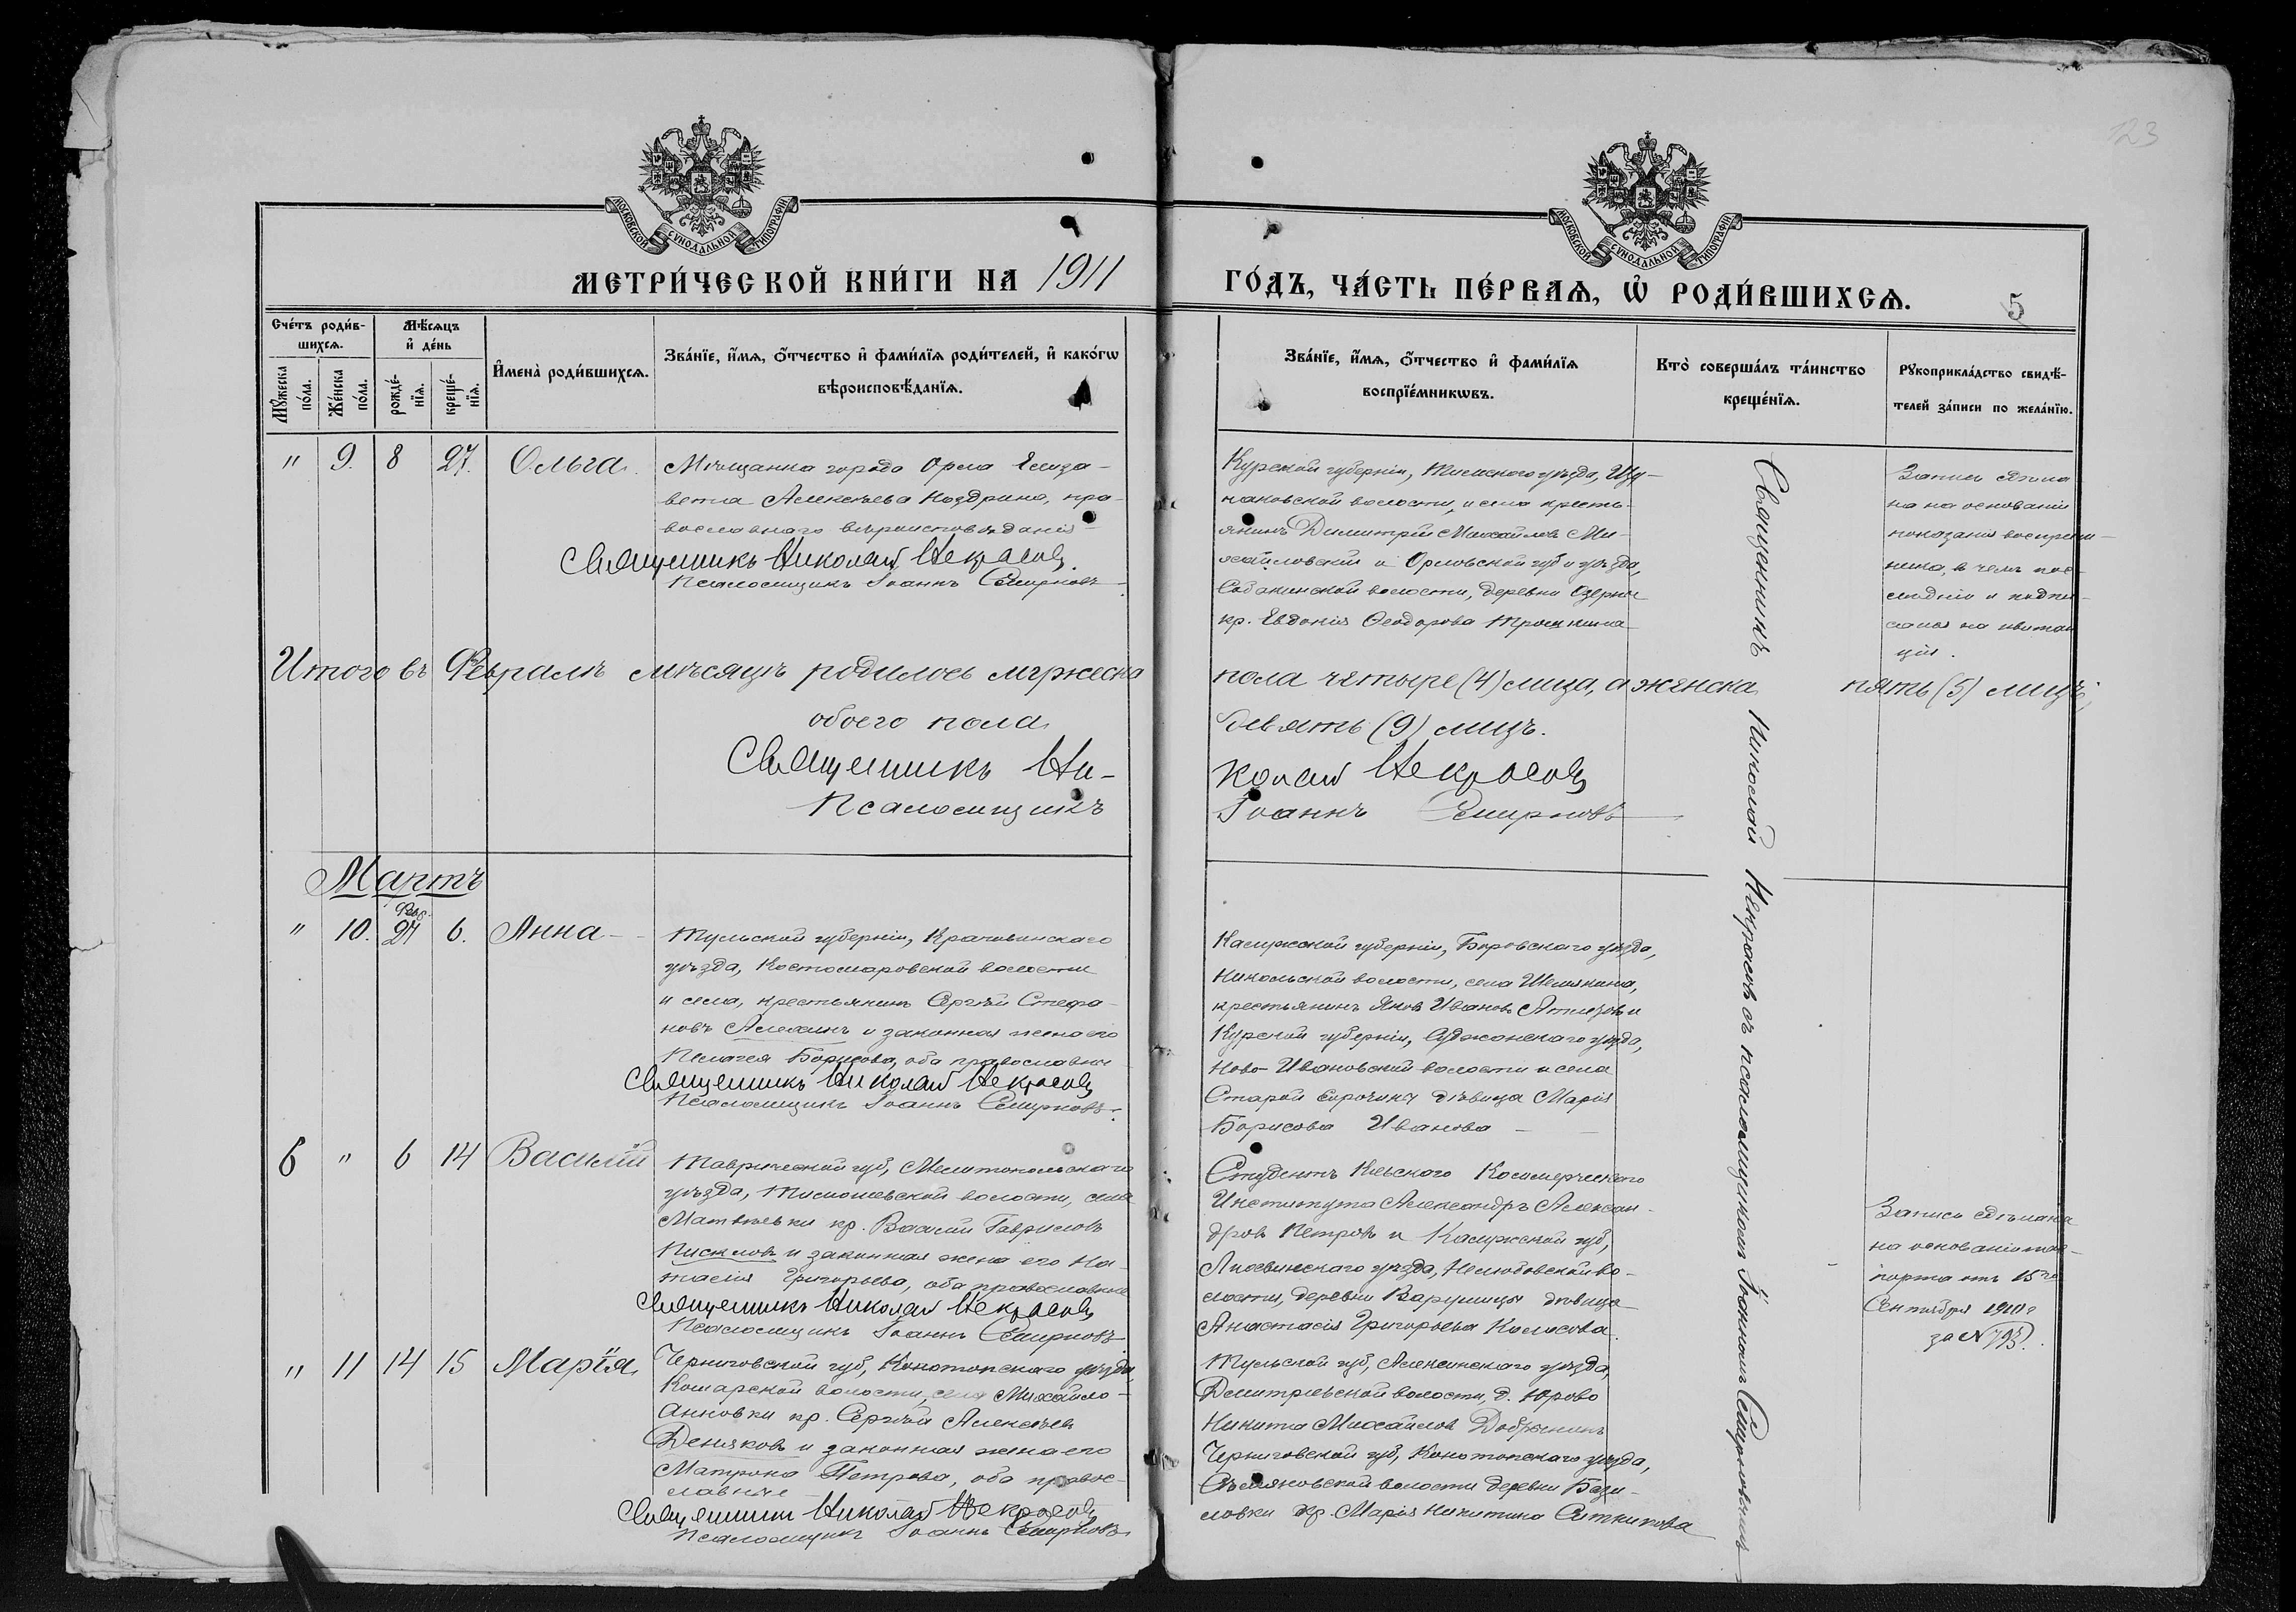 123
МОСКОВСКОЙ СУНОДАЛЬНОЙ ТИПОГРАФІИ
МОСКОВСКОЙ СУНОДАЛЬНОЙ ТИПОГРАФІИ
МЕТРИ́ЧЕСКОЙ КНИ́ГИ НА 1911
ГО́ДЪ, ЧА́СТЬ ПЕ́РВАѦ, Ѡ҆ РОДИ́ВШИХСѦ.
5
Сче́тъ роди́в-
шихсѧ.
Мꙋ́жеска по́ла.
Же́нска по́ла.
Мѣ́сѧцъ
и҆ де́нь
рожде́-
нїѧ.
креще́-
нїѧ.
И҆мена̀ роди́вшихсѧ.
Зва́нїе, и҆́мѧ, ѻ҆́тчество и҆ фами́лїѧ роди́телей, и҆ како́гѡ
вѣроисповѣ́данїѧ.
Зва́нїе, и҆́мѧ, ѻ҆́тчество и҆ фами́лїѧ
воспрїе́мникѡвъ.
Кто̀ соверша́лъ та́инство
креще́нїѧ.
Рꙋкоприкла́дство свидѣ́-
телей за́писи по жела́нїю.
" 9. 8 27. Ольга.
Мѣщанка города Орла Елиза-
вета Алексѣева Ноздрина, пра-
вославнаго вѣроисповѣданія
Священникъ Николай Некрасовъ.
Псаломщикъ Іоаннъ Смирновъ
Курской губерніи, Тимскаго уѣзда,
волости, и села кресть-
янинъ Димитрій Михайловъ Ми-
хайловскій и Орловской губ. и уѣзда,
Собакинской волости, деревни Озерки
кр. Евдокія Ѳеодорова
Запись сдѣла
на на основаніи
показанія воспріем-
ника, в чемъ пос-
лѣдній и подпи-
сался на квитан
ціи.
Итого въ Февралѣ мѣсяцѣ родилось мужеска
пола четыре (4) лица, а женска пять (5) лицъ;
обоего пола
девять (9) лицъ.
Священникъ Ни-
колай Некрасовъ
Псаломщикъ
Іоаннъ Смирновъ
Священникъ Николай Некрасовъ съ псаломщикомъ Іоанномъ Смирновымъ
Мартъ
Фев.
" 10. 27 6. Анна
Тульской губерніи, Крапивинскаго
уѣзда, Костомаровской волости
и села, крестьянинъ Сергѣй Стефа-
новъ Алехинъ и законная жена его
Пелагея Борисова, оба православные
Священникъ Николай Некрасовъ
Псаломщикъ Іоаннъ Смирновъ.
Калужской губерніи, Боровскаго уѣзда,
Никольской волости, села
крестьянинъ Яковъ Ивановъ и
Курской губерніи, Суджанскаго уѣзда,
Ново-Ивановской волости и села
Старой Сорочины дѣвица Марія
Борисова Иванова
6 " 6 14 Василій
Таврической губ., Мелитопольскаго
уѣзда, Тимошевской волости, села
Матвѣевки кр. Василій Гавриловъ
и законная жена его На-
талія Григорьева, оба православные
Священникъ Николай Некрасовъ
Псаломщикъ Іоаннъ Смирновъ
Студентъ Кіевскаго Коммерческаго
Института Александръ Алексан-
дровъ Петровъ и Калужской губ.,
Лихвинскаго уѣзда, во-
лости, деревни Варушицы дѣвица
Анастасія Григорьева Колосова.
Запись сдѣлана
на основаніи пас-
порта отъ 15го
Сентября 1910г
за № 793.
" 11 14 15 Марія.
Черниговской губ., Конотопскаго уѣзда,
волости, села Михайло-
Анновки кр. Сергѣй Алексѣевъ
Деняковъ и законная жена его
Матрона Петрова, оба правос-
лавные
Священникъ Николай Некрасовъ
Псаломщикъ Іоаннъ Смирновъ
Тульской губ., Алексинскаго уѣзда,
Димитріевской волости, д. Юрово
Никита Михайловъ Добрынинъ
Черниговской губ., Конотопскаго уѣзда,
волости деревни Бази-
ловки кр. Марія Никитина Ситникова